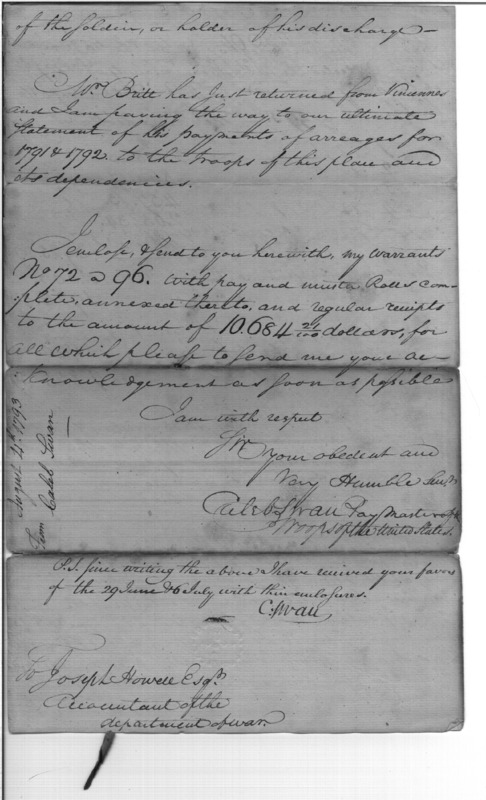 of the Soldier, or holder of his discharge —
Mr. Britt has Just returned from Vincennes
and I am paving the way to our ultimate
Statement of his payments of arreages for
1791 & 1792. to the troops of this place and
its dependencies.
I enclose, & send to you herewith, my warrants
No 72 a 96. with pay and muster Rolls com-
plete, annexed thereto, and regular receipts
to the amount of 10.684 21/100 dollars, for
all which please to send me your ac-
knowledgement as soon as possible
I am with respect
Sir
Your obedient and
Very Humble Servt
Caleb Swan Pay Master to the
Troops of the United States.
P.S. since writing the above I have received your favors
of the 29 June & 6 July with their enclosures.
C: Swan
To Joseph Howell Esqr.
Accountant of the
department of war
August 4th 1793
from Caleb Swan